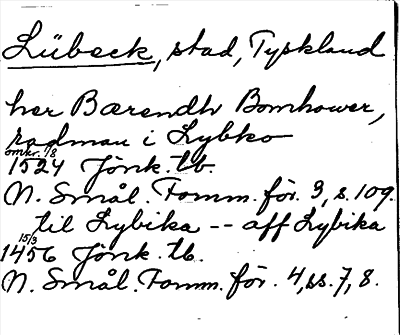 Lübeck, stad, Tyskland
her Bærendh Bomhower,
radman i Lybko
omkr. 1/8
1524 Jönk. tb.
N. Smål. Fornm. för. 3, s. 109.
til Lybika -- aff Lybika
15/3
1456 Jönk. tb.
N. Smål. Fornm. för. 4, ss. 7, 8.